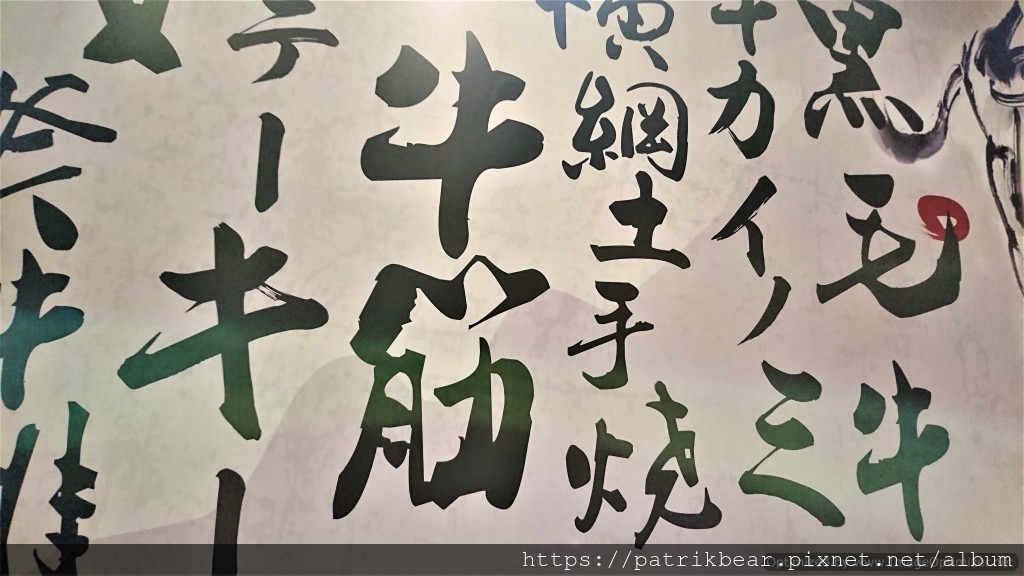 黒毛牛
牛カイノミ
横綱土手焼
牛筋
テーキー
https://patrikbear.pixnet.net/album